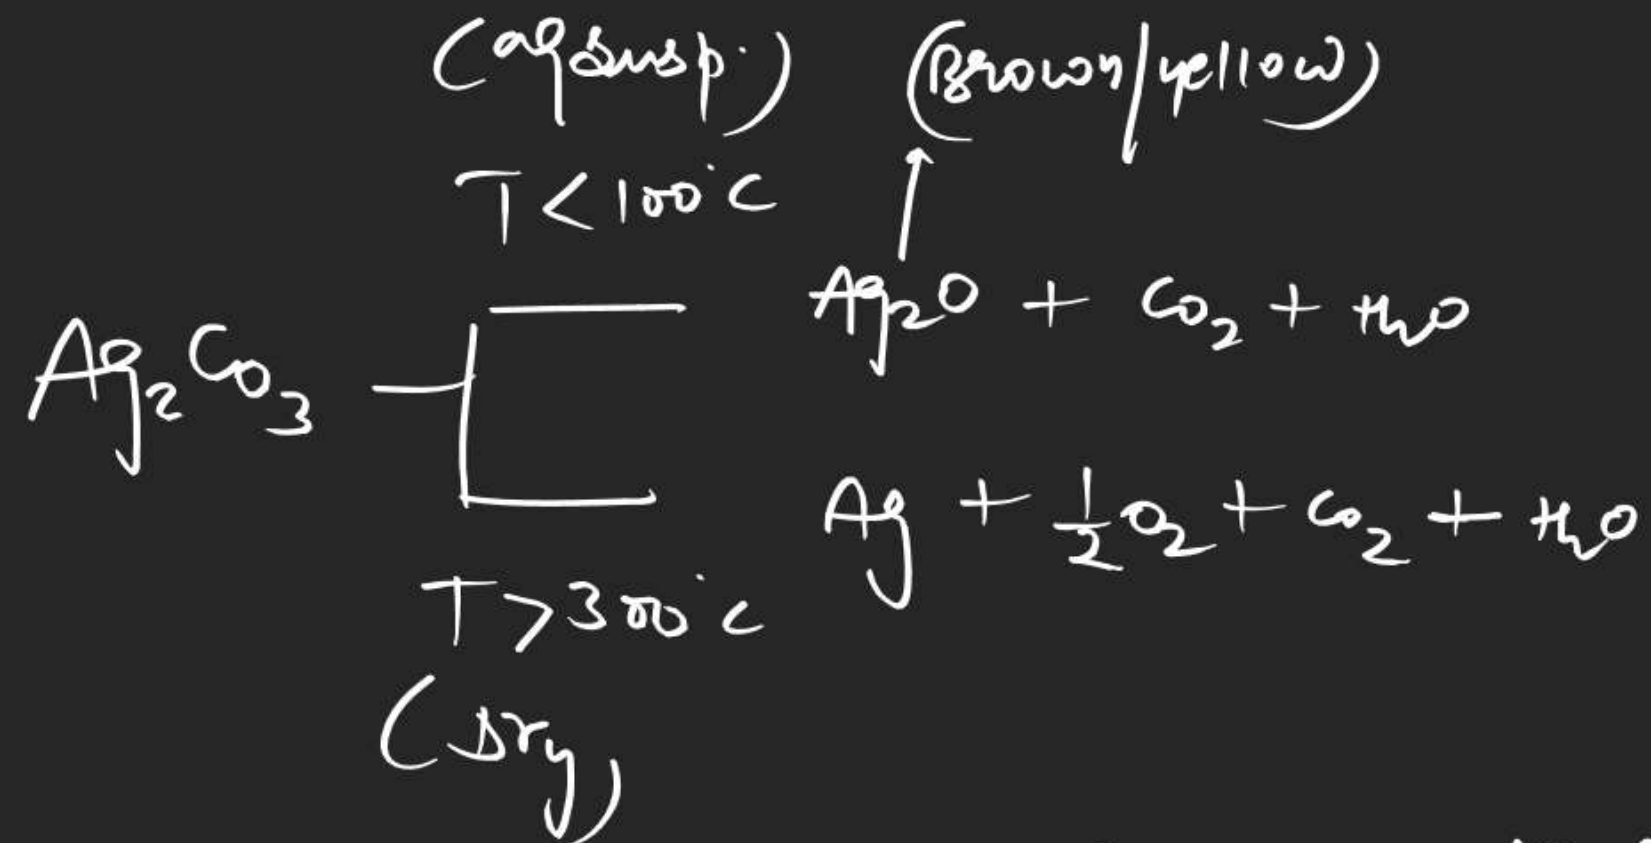 (aq susp.) (Brown/yellow)
T < 100°C
Ag₂O + CO₂ + H₂O
Ag₂CO₃
Ag + ½O₂ + CO₂ + H₂O
T > 300°C
(Dry)